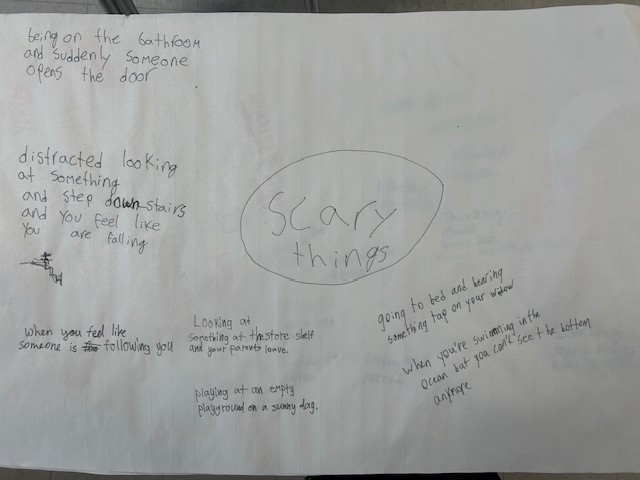 being on the bathroom
and suddenly someone
opens the door
distracted looking
at something
and step down stairs
and you feel like
you are falling
Scary
things
when you feel like
someone is following you
Looking at
something at the store shelf
and your parents leave.
playing at an empty
playground on a sunny day.
going to bed and hearing
something tap on your widow
when you're swimming in the
ocean but you can't see the bottom
anymore